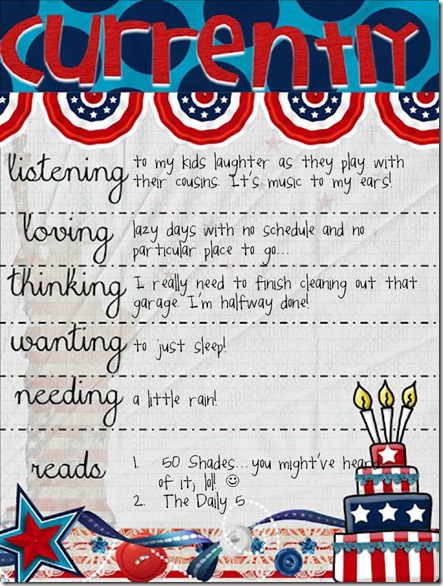 currently
listening to my kids laughter as they play with
their cousins. It's music to my ears!
loving lazy days with no schedule and no
particular place to go...
thinking I really need to finish cleaning out that
garage. I'm halfway done!
wanting to just sleep!
needing a little rain!
reads 1. 50 Shades...you might've heard
of it, lol! ☺
2. The Daily 5